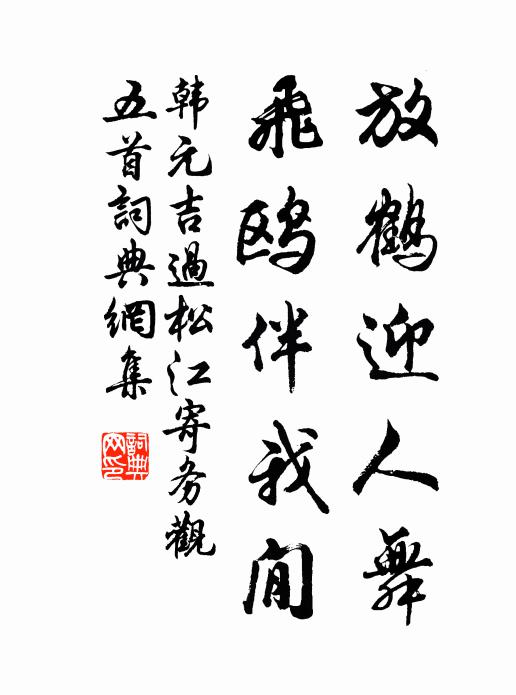 放鶴迎人舞
飛鸥伴我閒
韩元吉過松江寄务觀
五首詞典網集
詞典网印